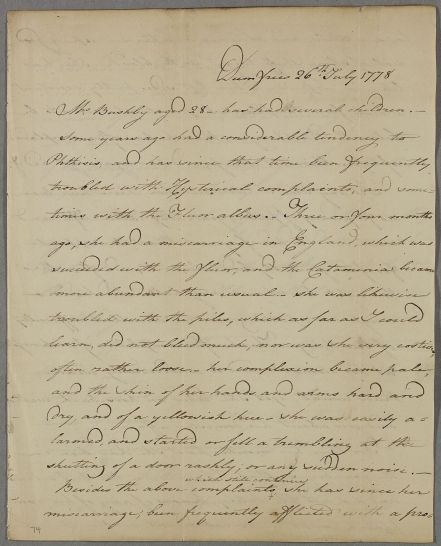 Dumfries 26th July 1778
Mrs Bushby aged 28 - has had several children. -
Some years ago had a considerable tendency to
Phthisis, and has since that time been frequently
troubled with Hysterical complaints, and some-
times with the Fluor albus. - Three or four months
ago, she had a miscarriage in England, which was
succeeded with the fluor, and the Catamenia became
more abundant than usual - she was likewise
troubled with the piles, which as far as I could
learn, did not bleed much, nor was she very costive,
often rather loose. - her complexion became pale,
and the skin of her hands and arms hard and
dry and of a yellowish hue - she was easily a=
larmed, and started or fell a trembling at the
shutting of a door rashly, or any sudden noise. -
which still continue
Besides the above complaints, she has since her
miscarriage, been frequently afflicted with a pro=
74